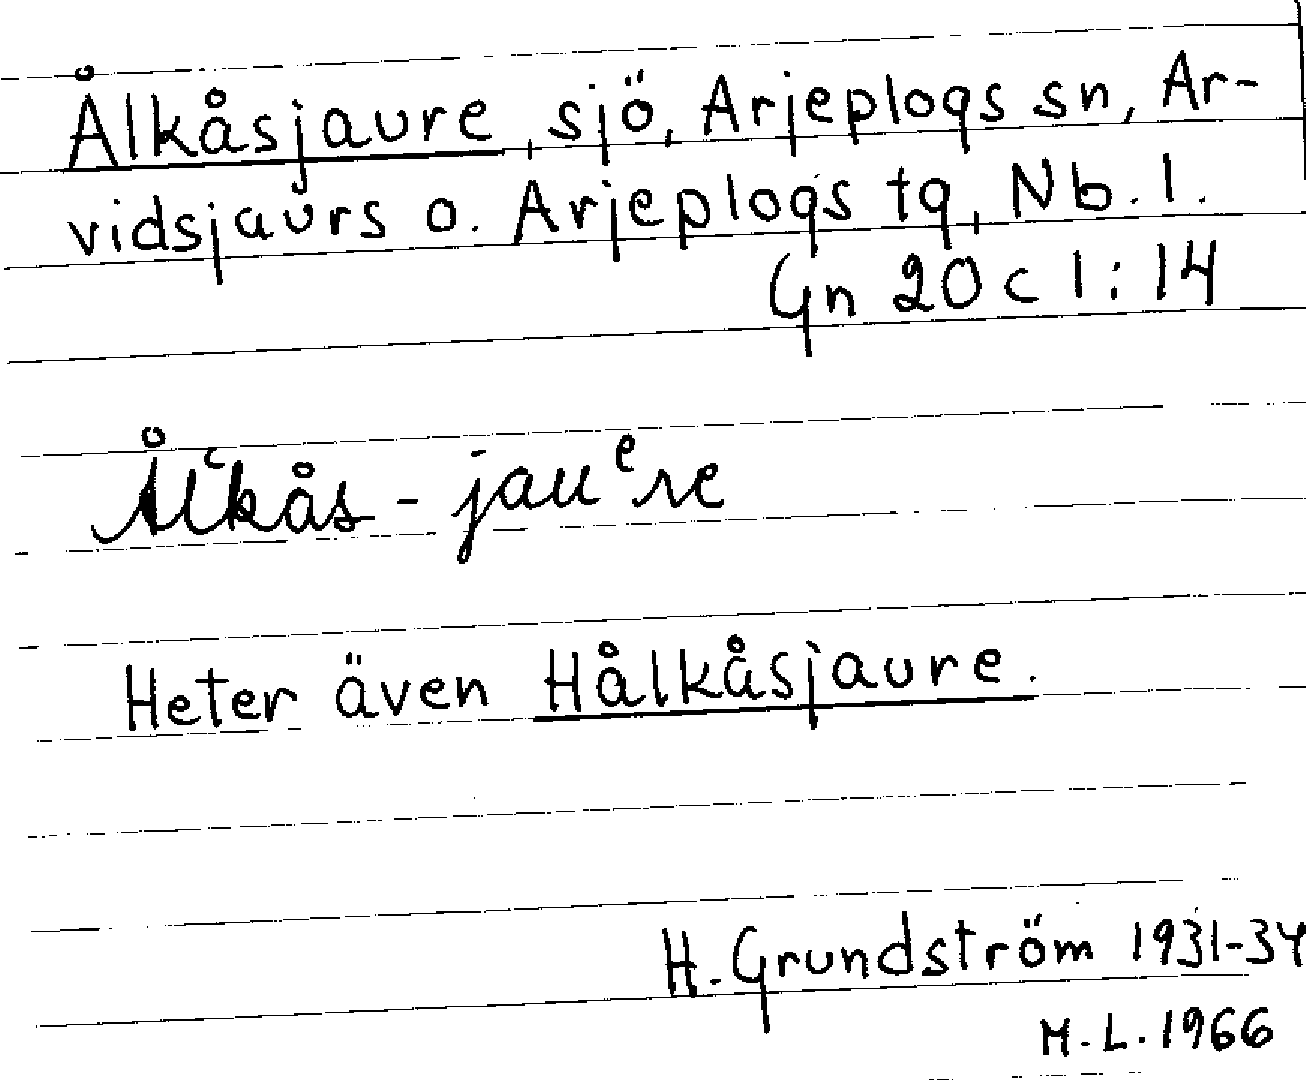 Ålkåsjaure, sjö, Arjeplogs sn, Ar-
vidsjaurs o. Arjeplogs tg, Nb. l.
Gn 20 c 1:14
Ålʿkås-jauᵉre
Heter även Hålkåsjaure.
H. Grundström 1931-34
M.L. 1966